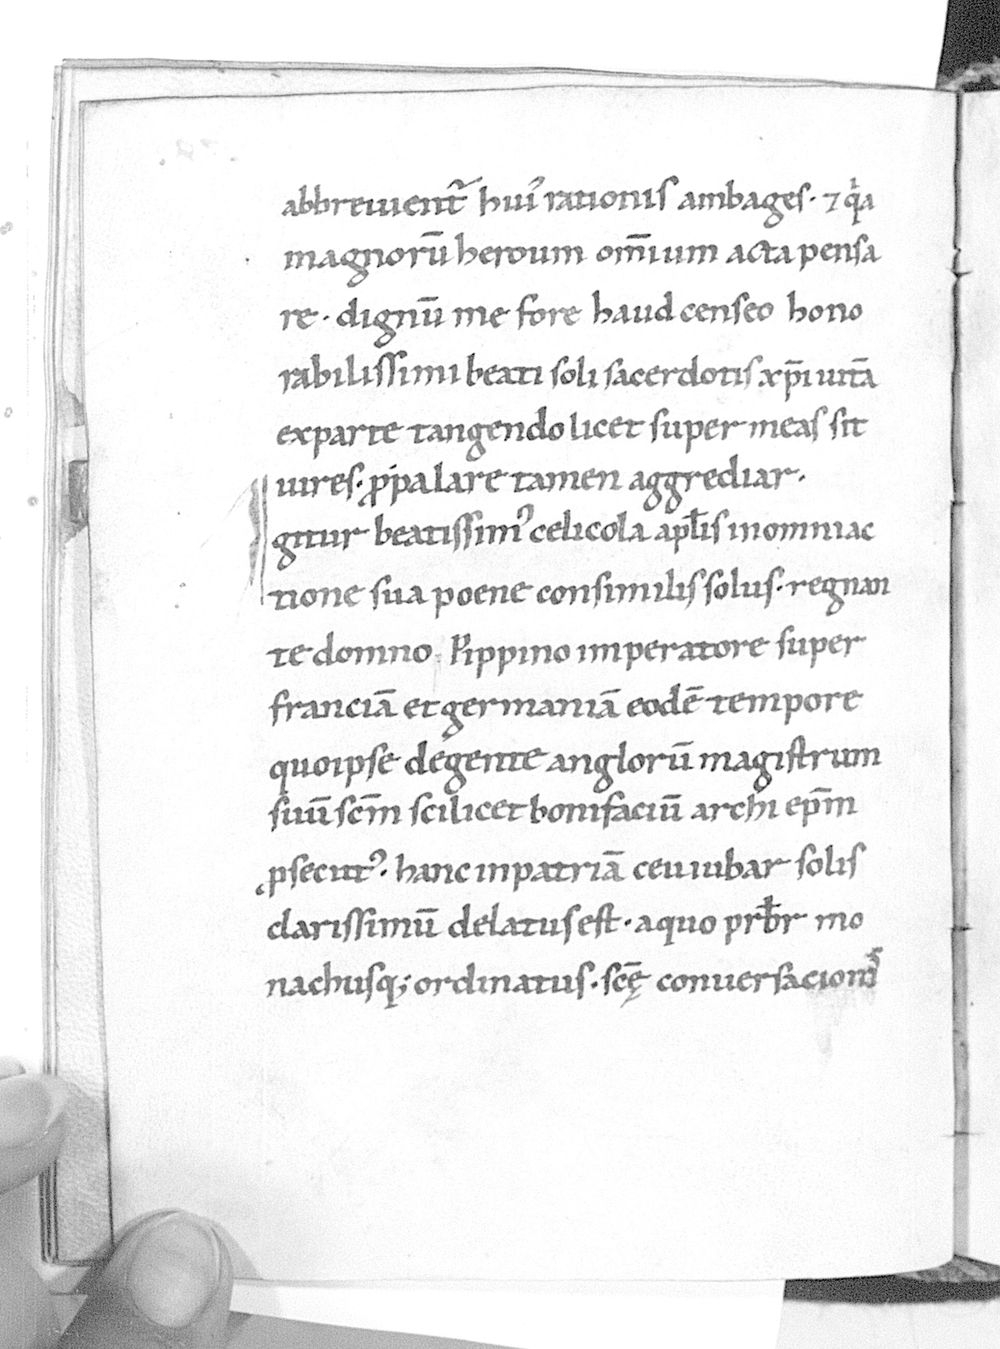 abbreuient᷑ hui᷒ rationis ambages · ⁊ qͥa
magnorū heroum om̄ium acta pensa
re · dignū me fore haud censeo hono
rabilissimi beati soli sacerdotis xp̄i uitā
exparte tangendo licet super meas sit
uires · ꝓpalare tamen aggrediar ·
Igitur beatissim᷒ celicola apl̄is inomniac
tione sua poene consimilis solus · regnan
te domno Pippino imperatore super
franciā et germaniā eodē tempore
quoipse degente anglorū magistrum
suū scm̄ scilicet bonifaciū archi ep̄m
ꝓsecut᷒ · hanc inpatriā ceu iubar solis
clarissimū delatus est · aquo prb̄r mo
nachusq; ordinatus · scę̄ conuersacionis